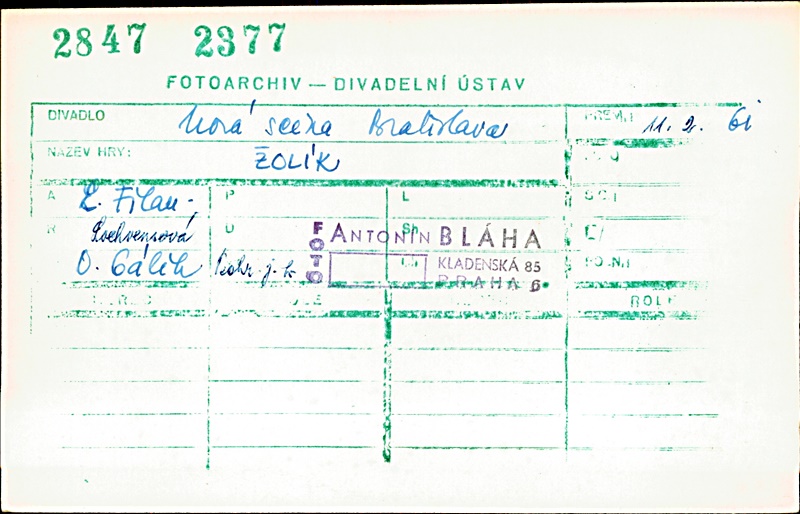 2847 2377
FOTOARCHIV — DIVADELNÍ ÚSTAV
DIVADLO Nová scéna Bratislava PREM.: 11. 2. 61
NÁZEV HRY: ŽOLÍK
A L. Filan- P L
R D Sh
O. Gálik
FOTO ANTONÍN BLÁHA
KLADENSKÁ 85
PRAHA 6
ROLE